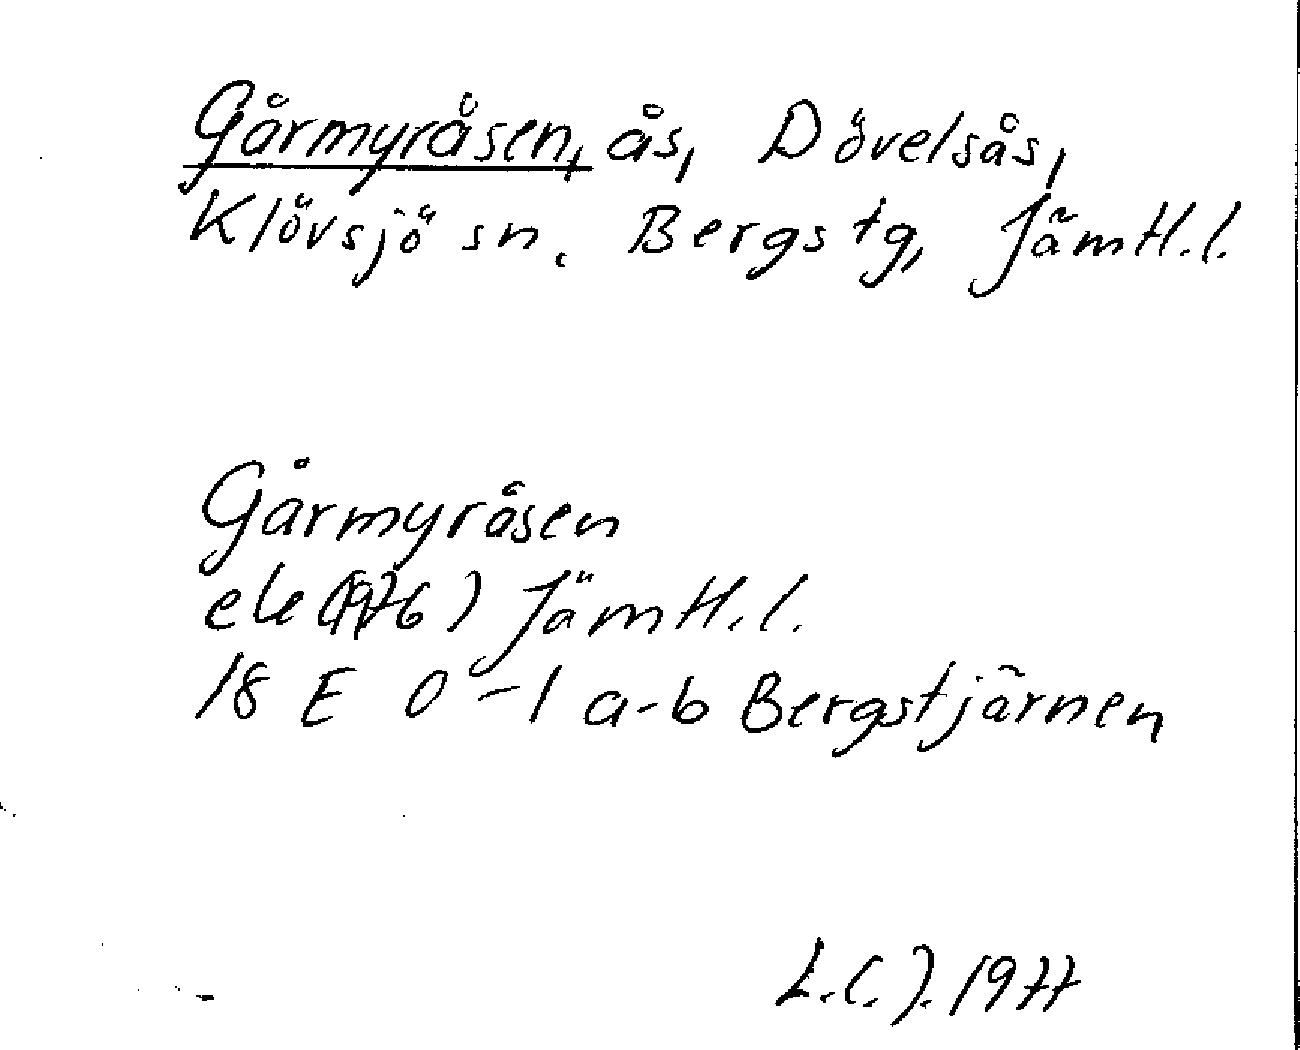 Gårmyråsen, ås, Dövelsås,
Klövsjö sn. Bergs tg, Jämtl.l.
Gårmyråsen
ek (1976) Jämtl.l.
18 E 0-1 a-b Bergstjärnen
L.C.J. 1977